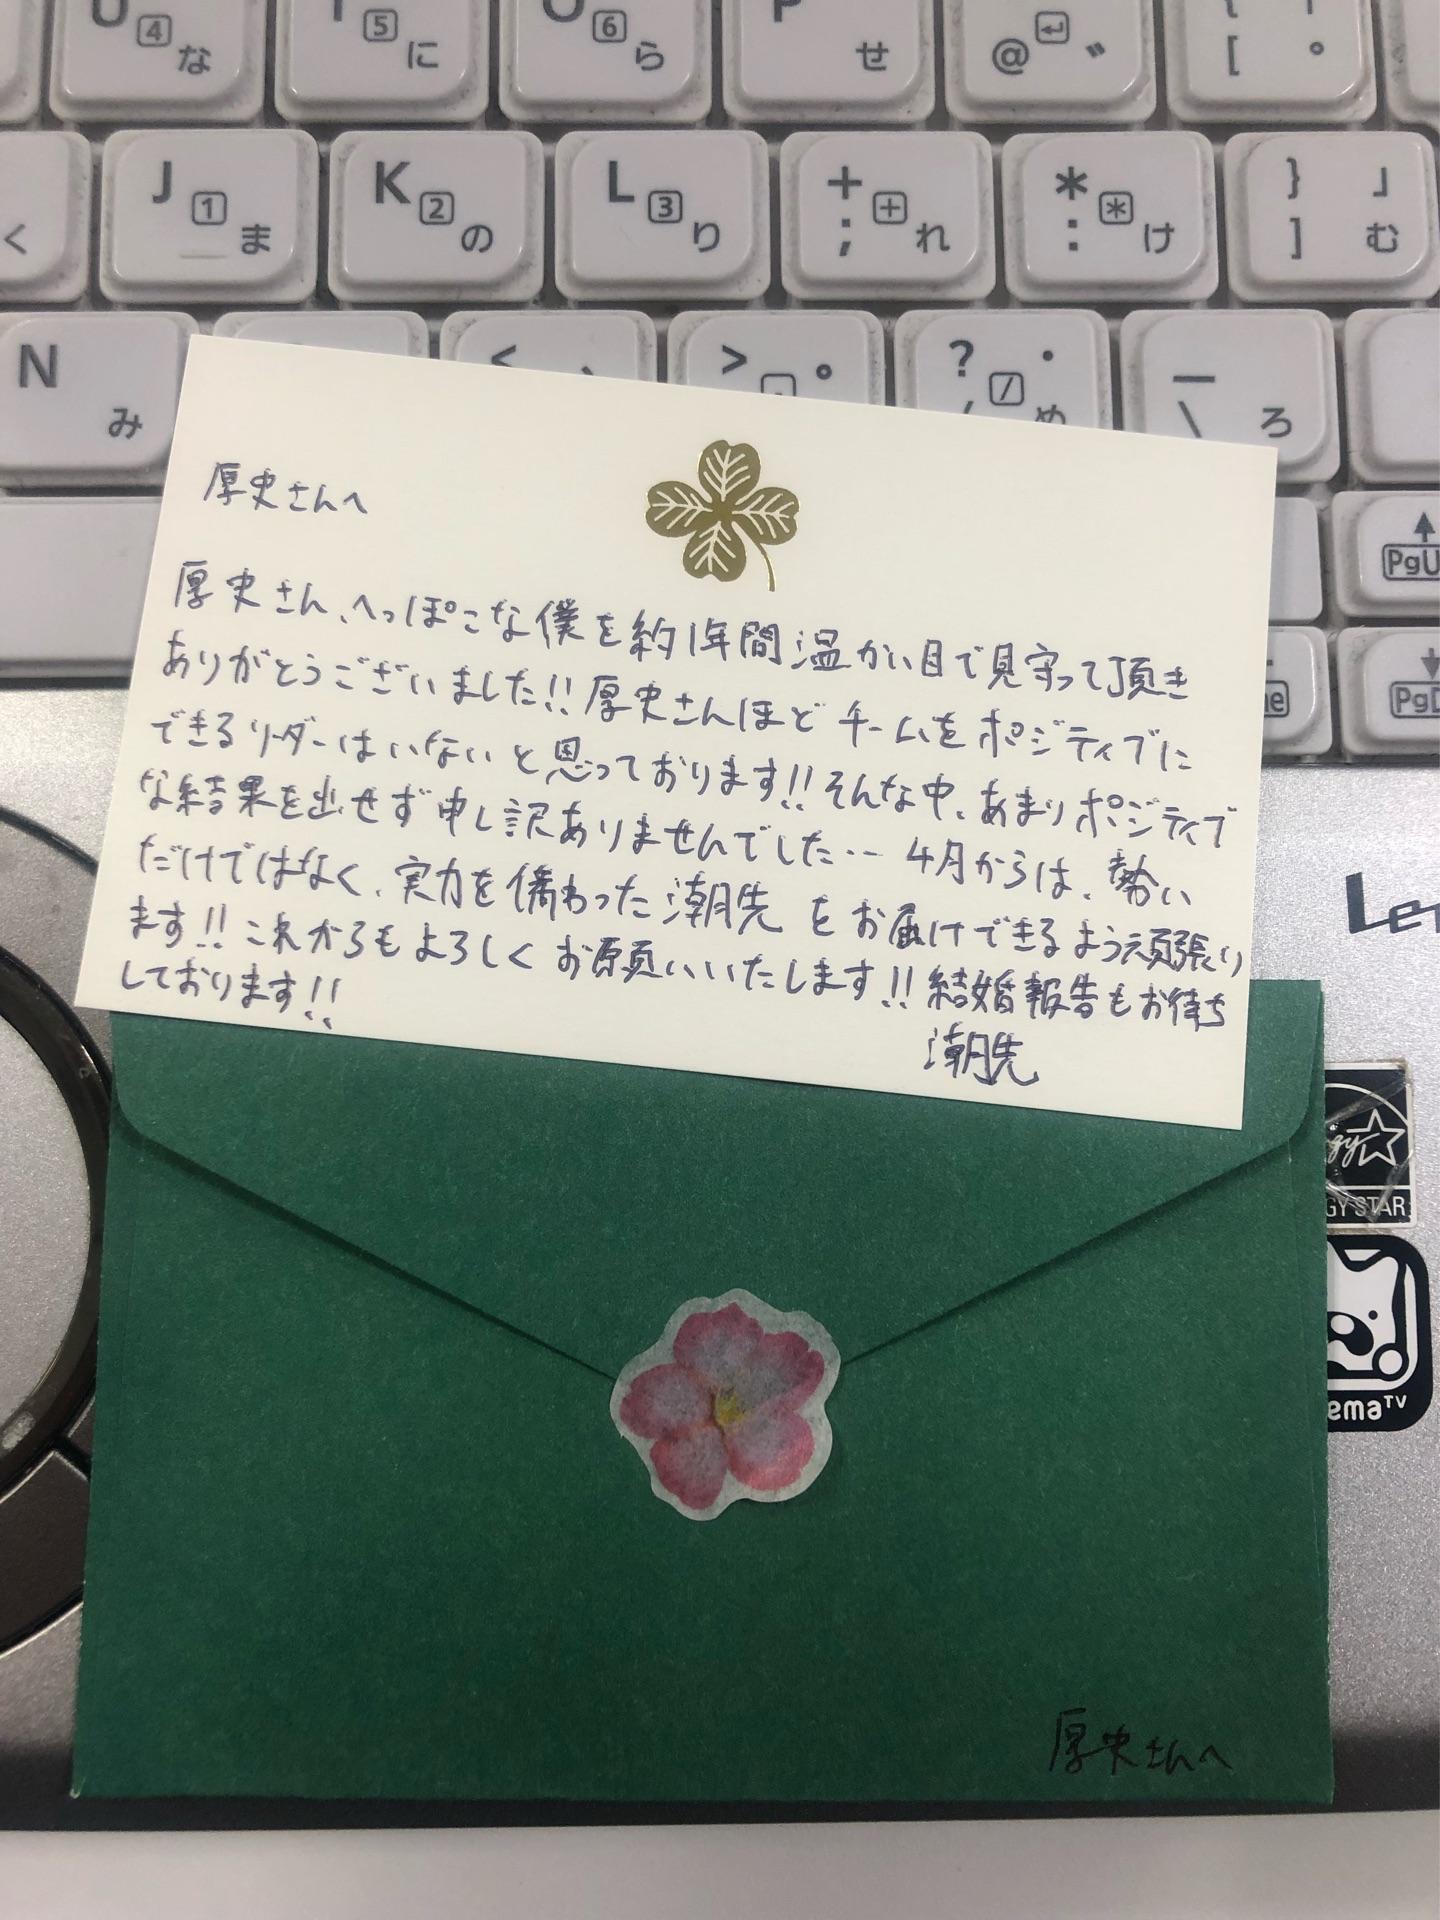 U 4 な
5 に
O 6 ら
P せ
@ ゛
[ ゜
く
J 1 ま
K 2 の
L 3 り
+ ; + れ
* : * け
} 」 ] む
N み
< 、
> 。 .
? ・ / め
_ \ ろ
PgU
PgD
厚史さんへ
厚史さん、へっぽこな僕を約1年間温かい目で見守って頂き
ありがとうございました!!厚史さんほどチームをポジティブに
できるリーダーはいないと思っております!!そんな中、あまりポジティブ
な結果を出せず申し訳ありませんでした… 4月からは、勢い
だけではなく、実力を備わった潮先をお届けできるよう頑張り
ます!!これからもよろしくお願いいたします!!結婚報告もお待ち
しております!!
潮先
Le
GY STAR
ema TV
厚史さんへ